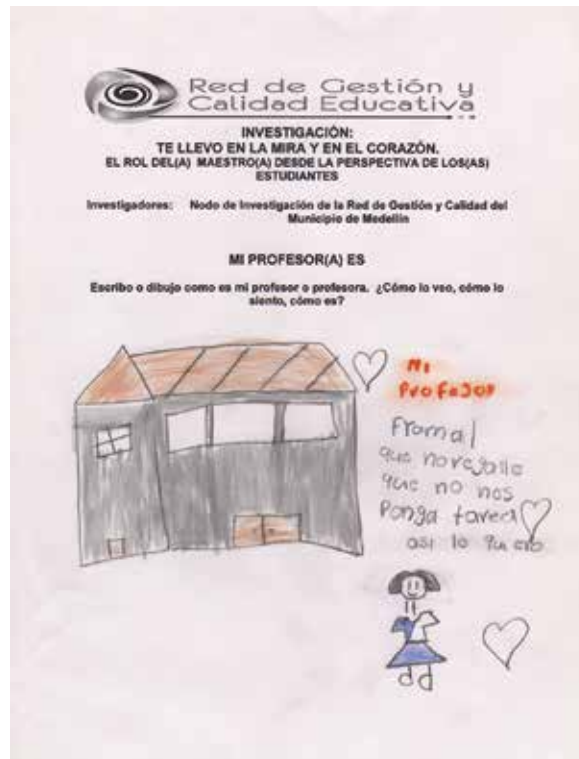 Red de Gestión y
Calidad Educativa
INVESTIGACIÓN:
TE LLEVO EN LA MIRA Y EN EL CORAZÓN.
EL ROL DEL(A) MAESTRO(A) DESDE LA PERSPECTIVA DE LOS(AS)
ESTUDIANTES
Investigadores: Nodo de Investigación de la Red de Gestión y Calidad del
Municipio de Medellín
MI PROFESOR(A) ES
Escribo o dibujo como es mi profesor o profesora. ¿Cómo lo veo, cómo lo
siento, cómo es?
Mi
Profesor
Fromal
que no regañe
que no nos
Ponga tarea
asi lo quero